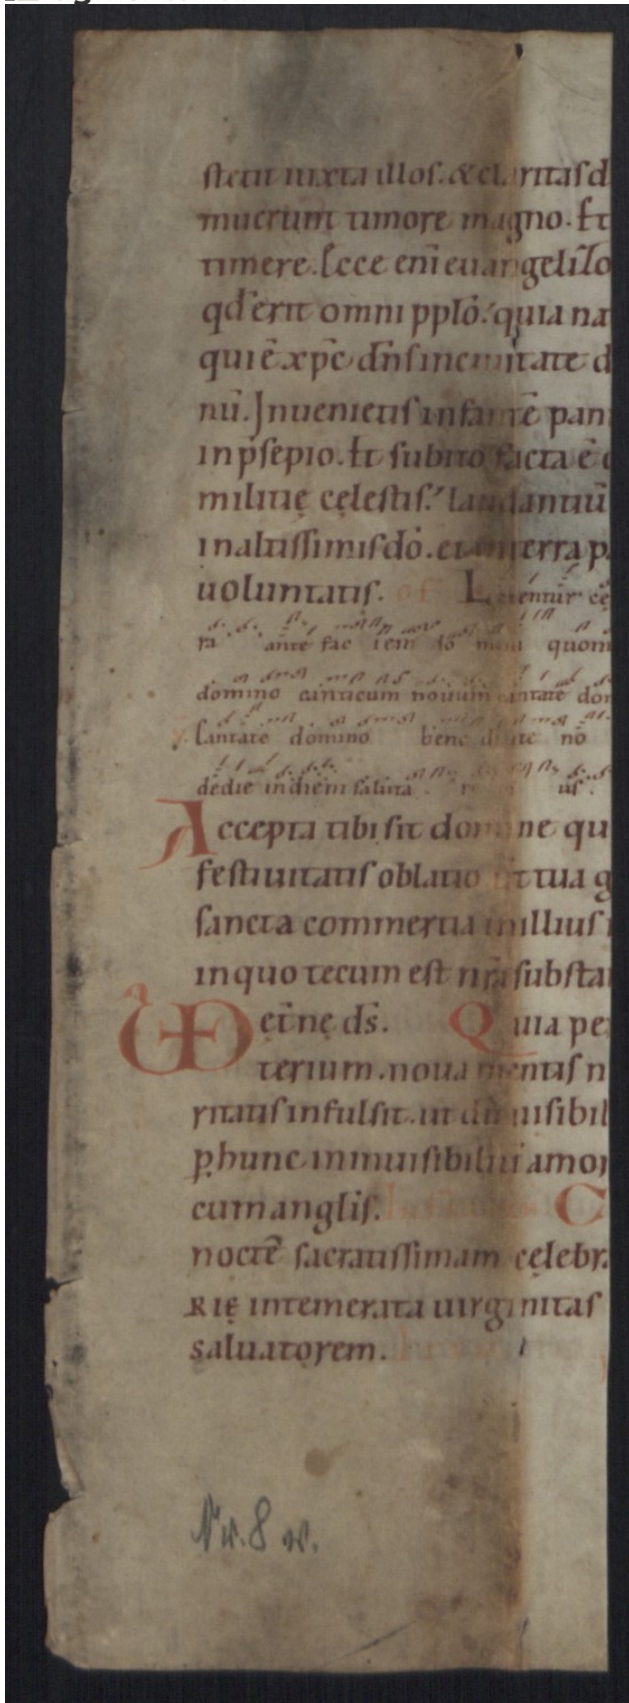 stetit iuxta illos. & claritas d
muerunt timore magno. Et
timere. Ecce eni evangelizo
qd erit omni pplo. quia na
qui ē xpc dns in civitate d
nū. Invenietis infantē pan
in psepio. Et subito facta ē
militię cęlestis. laudantiū
in altissimis dō. et in terra p
voluntatis. of Letentur cę
ra ante faciem do mini quoni
domino canticum novum cantate do
Cantate domino bene dicite no
dedie indiem saluta us.
Accepta tibi sit domine qu
festivitatis oblatio ut tua g
sancta commertia in illius
in quo tecum est nr̄a substa
ęt̄nę d̄s. Quia pe
terium. nova mentis n
ritatis infulsit. ut dū visibil
p hunc in invisibiliū amor
cum anglis. C
noctē sacratissimam cęlebr
RIĘ intemerata virginitas
salvatorem.
Nr. 8 v.